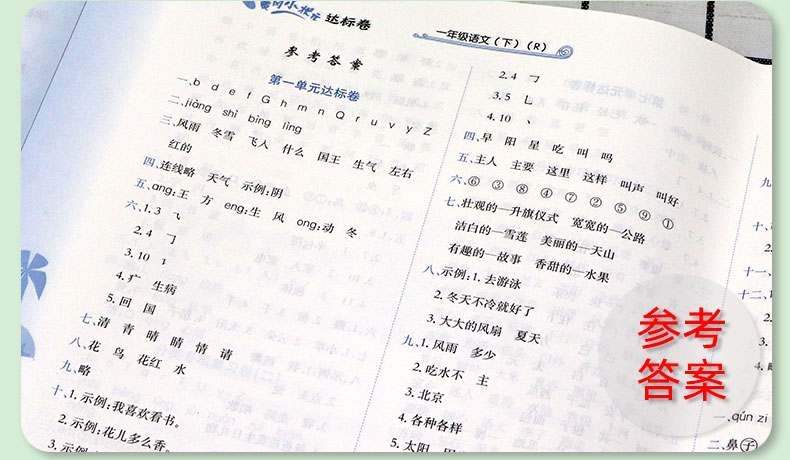 黄冈小状元 达标卷
一年级语文(下)(R)
参考答案
第一单元达标卷
一、b d e f G h m n Q r u v y Z
二、jiàng shī bīng líng
三、风雨 冬雪 飞人 什么 国王 生气 左右
红的
四、连线略 天气 示例:阴
五、ang:王 方 eng:生 风 ong:动 冬
六、1.3 ㇂
2.4 ㇆
3.10 ㇊
4.疒 生病
5.回 国
七、清 青 晴 睛 情 请
八、花 鸟 花红 水
九、略
十、1.示例:我喜欢看书。
2.示例:花儿多么香。
3.示例
2.4 ㇆
3.5 乚
4.10 丶
四、早 阳 星 吃 叫 吗
五、主人 主要 这里 这样 叫声 叫好
六、⑥ ③ ⑧ ④ ⑦ ② ⑤ ⑨ ①
七、壮观的—升旗仪式 宽宽的—公路
洁白的—雪莲 美丽的—天山
有趣的—故事 香甜的—水果
八、示例:1.去游泳
2.冬天不冷就好了
3.大大的风扇 夏天
九、1.风雨 多少
2.吃水不 主
3.北京
4.各种各样
5.太阳
九
十、
十一、
十二、
一、qún zi
二、鼻子
参考
答案